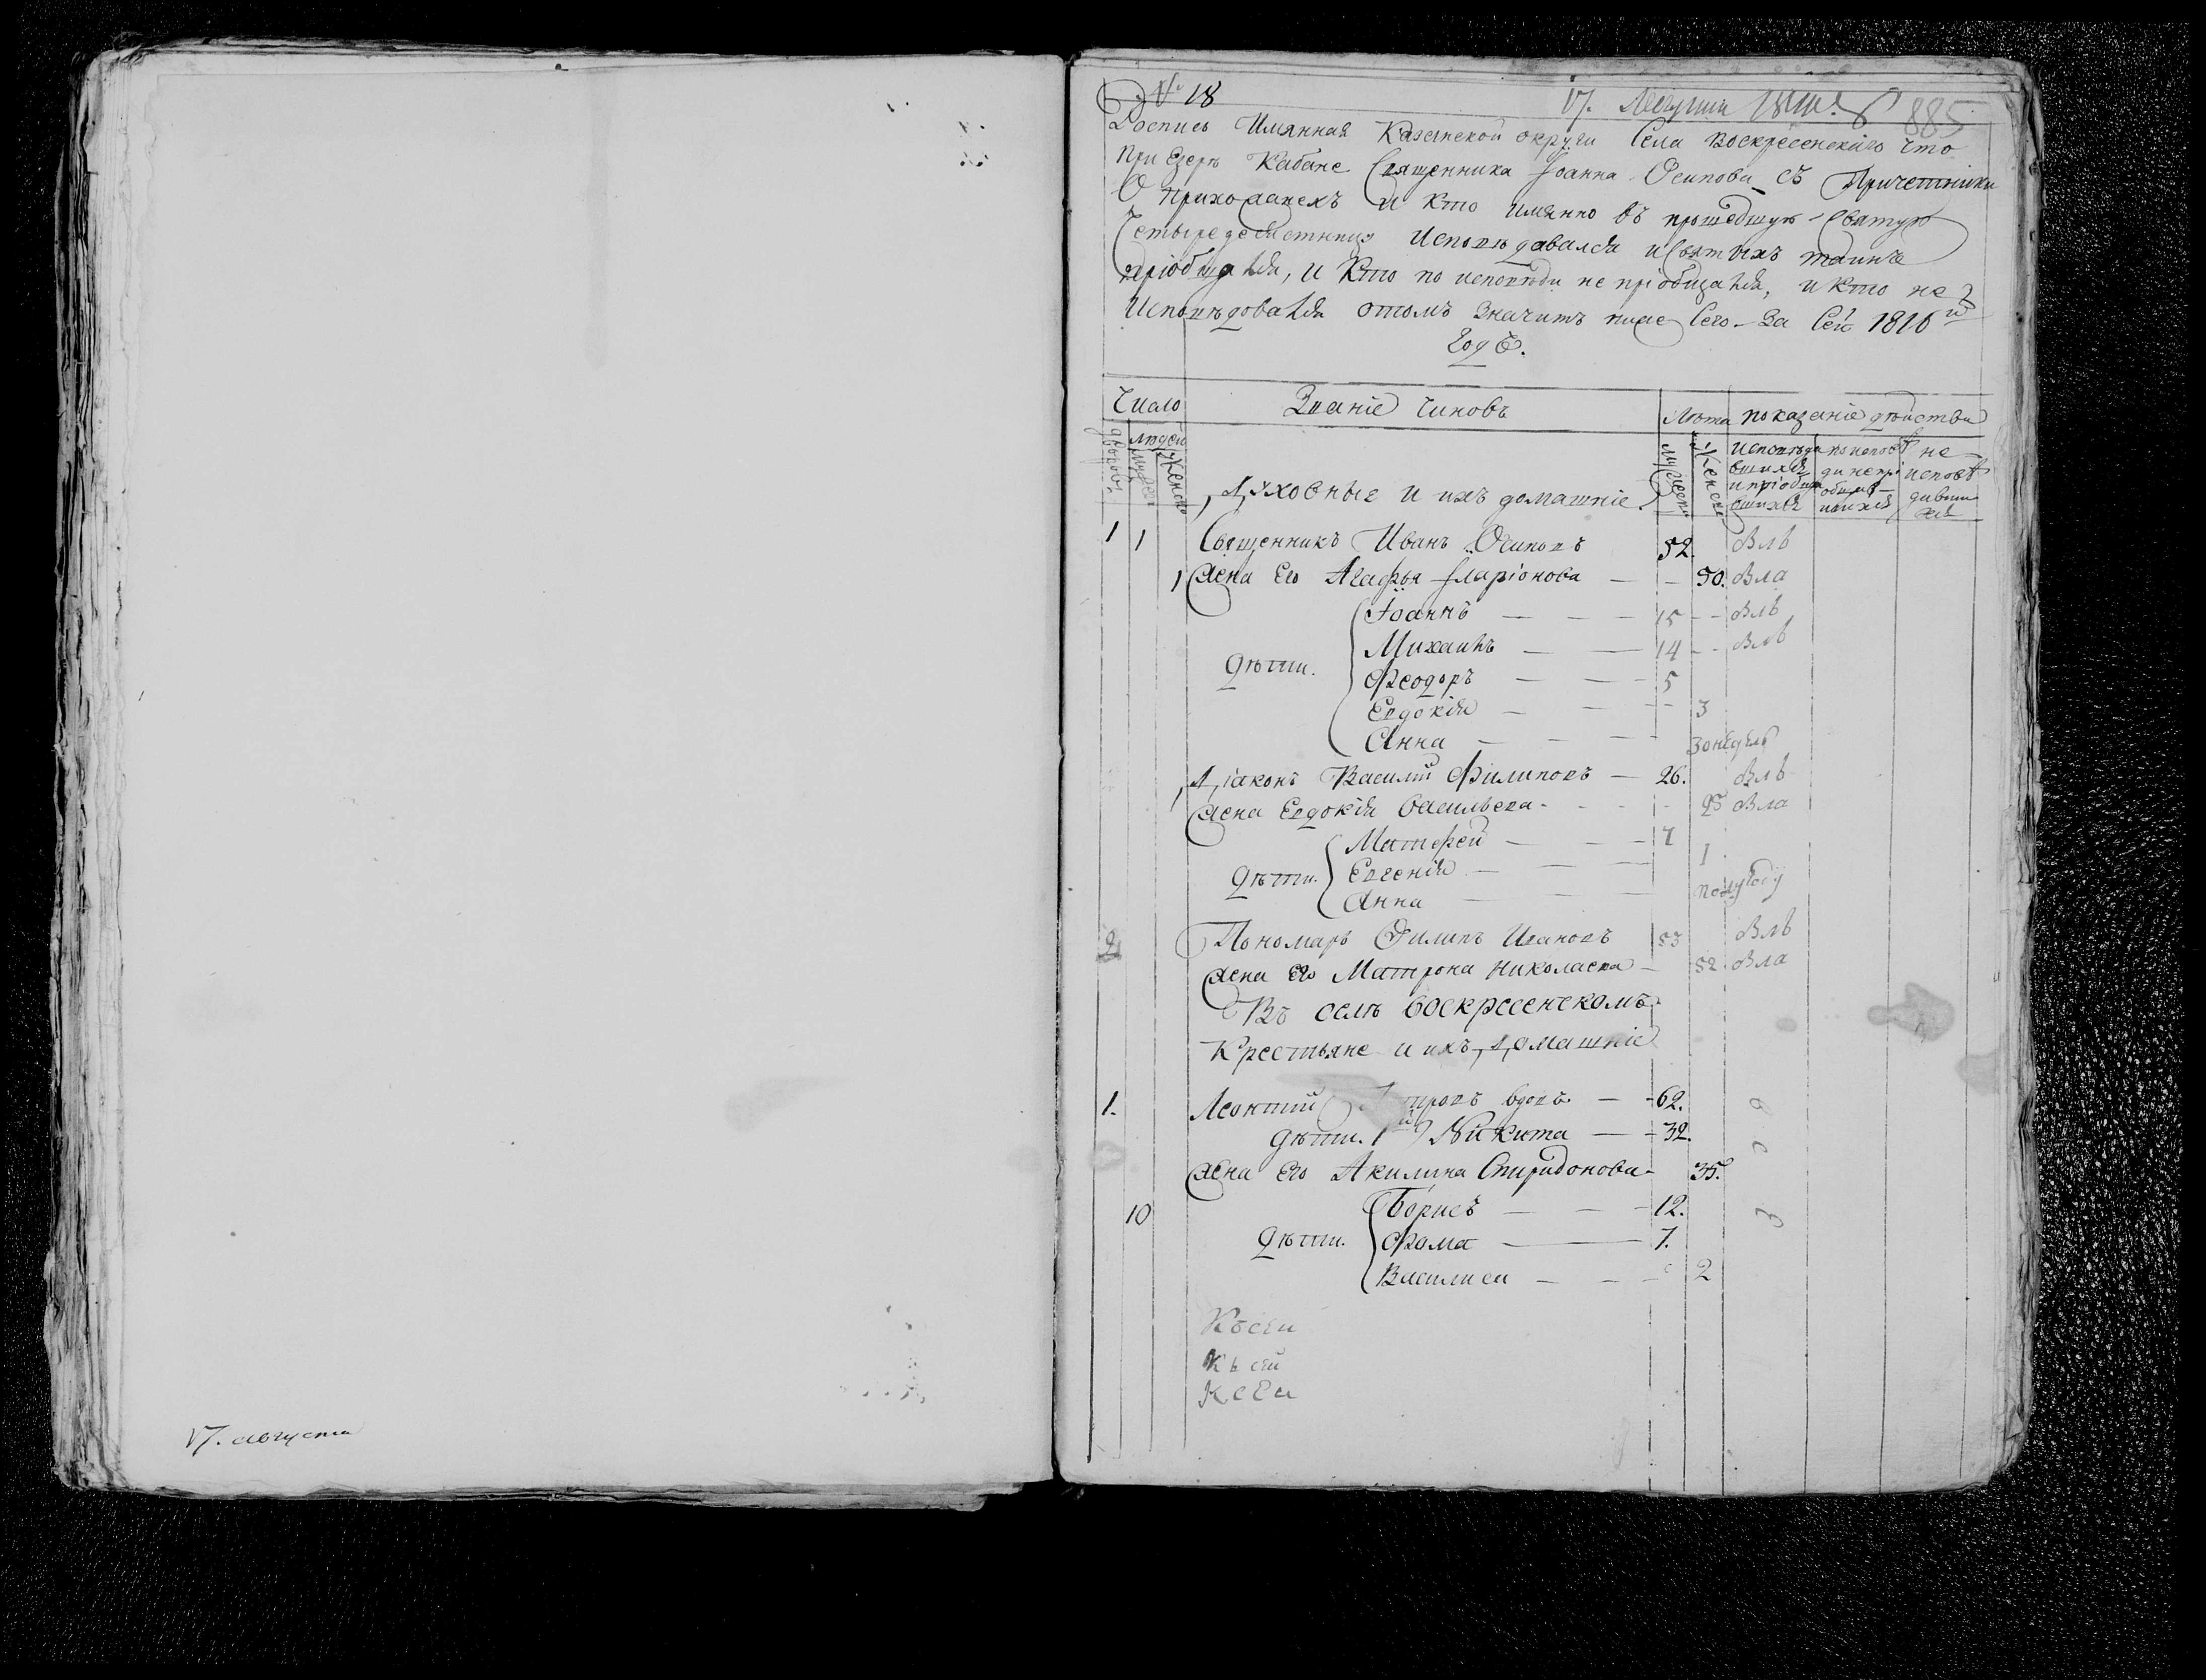 17. августа
№ 18
17. Августа 885
Роспись Имянная Казанской округи Села Воскресенскаго что
при Езерѣ Кабане Священника Іоанна Осипова съ Причетники
О приходанехъ и кто имянно въ прошедшую Святую
Четыредесятницу Исповѣдавался и Святыхъ таинъ
пріобщался, и кто по исповѣди не пріобщался, и кто не
Исповѣдовался о томъ значитъ ниже Сего За Сей 1816й
Годъ.
Число Званіе чиновъ Лѣта показаніе дѣйства
дворовъ людей мужеск женско мужеск женска исповѣда вшихся и пріобща вшихся по исповѣ ди не прі общив шихся не исповѣ дивши хся
Духовные и ихъ домашніе
1 1 Священникъ Иванъ Осиповъ 52. Влъ
1 Жена Его Агафья Иларіонова 50. Вла
Іоаннъ 15 Влъ
Михаилъ 14 Влъ
дѣти. Феодоръ 5
Евдокія 3
Анна 30 недѣль
Діаконъ Василій Филиповъ 26. Влъ
Жена Евдокія Васильева 25 Вла
Матфей 7
дѣти. Евгенія 1
Анна полугоду
2 Пономарь Филипъ Ивановъ 53 Влъ
Жена Его Матрона Николаева 52 Вла
Въ селѣ Воскресенскомъ
Крестьяне и ихъ домашніе
1. Леонтій вдовъ 62.
дѣти. 1й Никита 32.
Жена Его Акилина Спиридонова 35.
10 Борисъ 12.
дѣти. Фома 7.
Василиса 2
Къ сей
къ сей
К сей